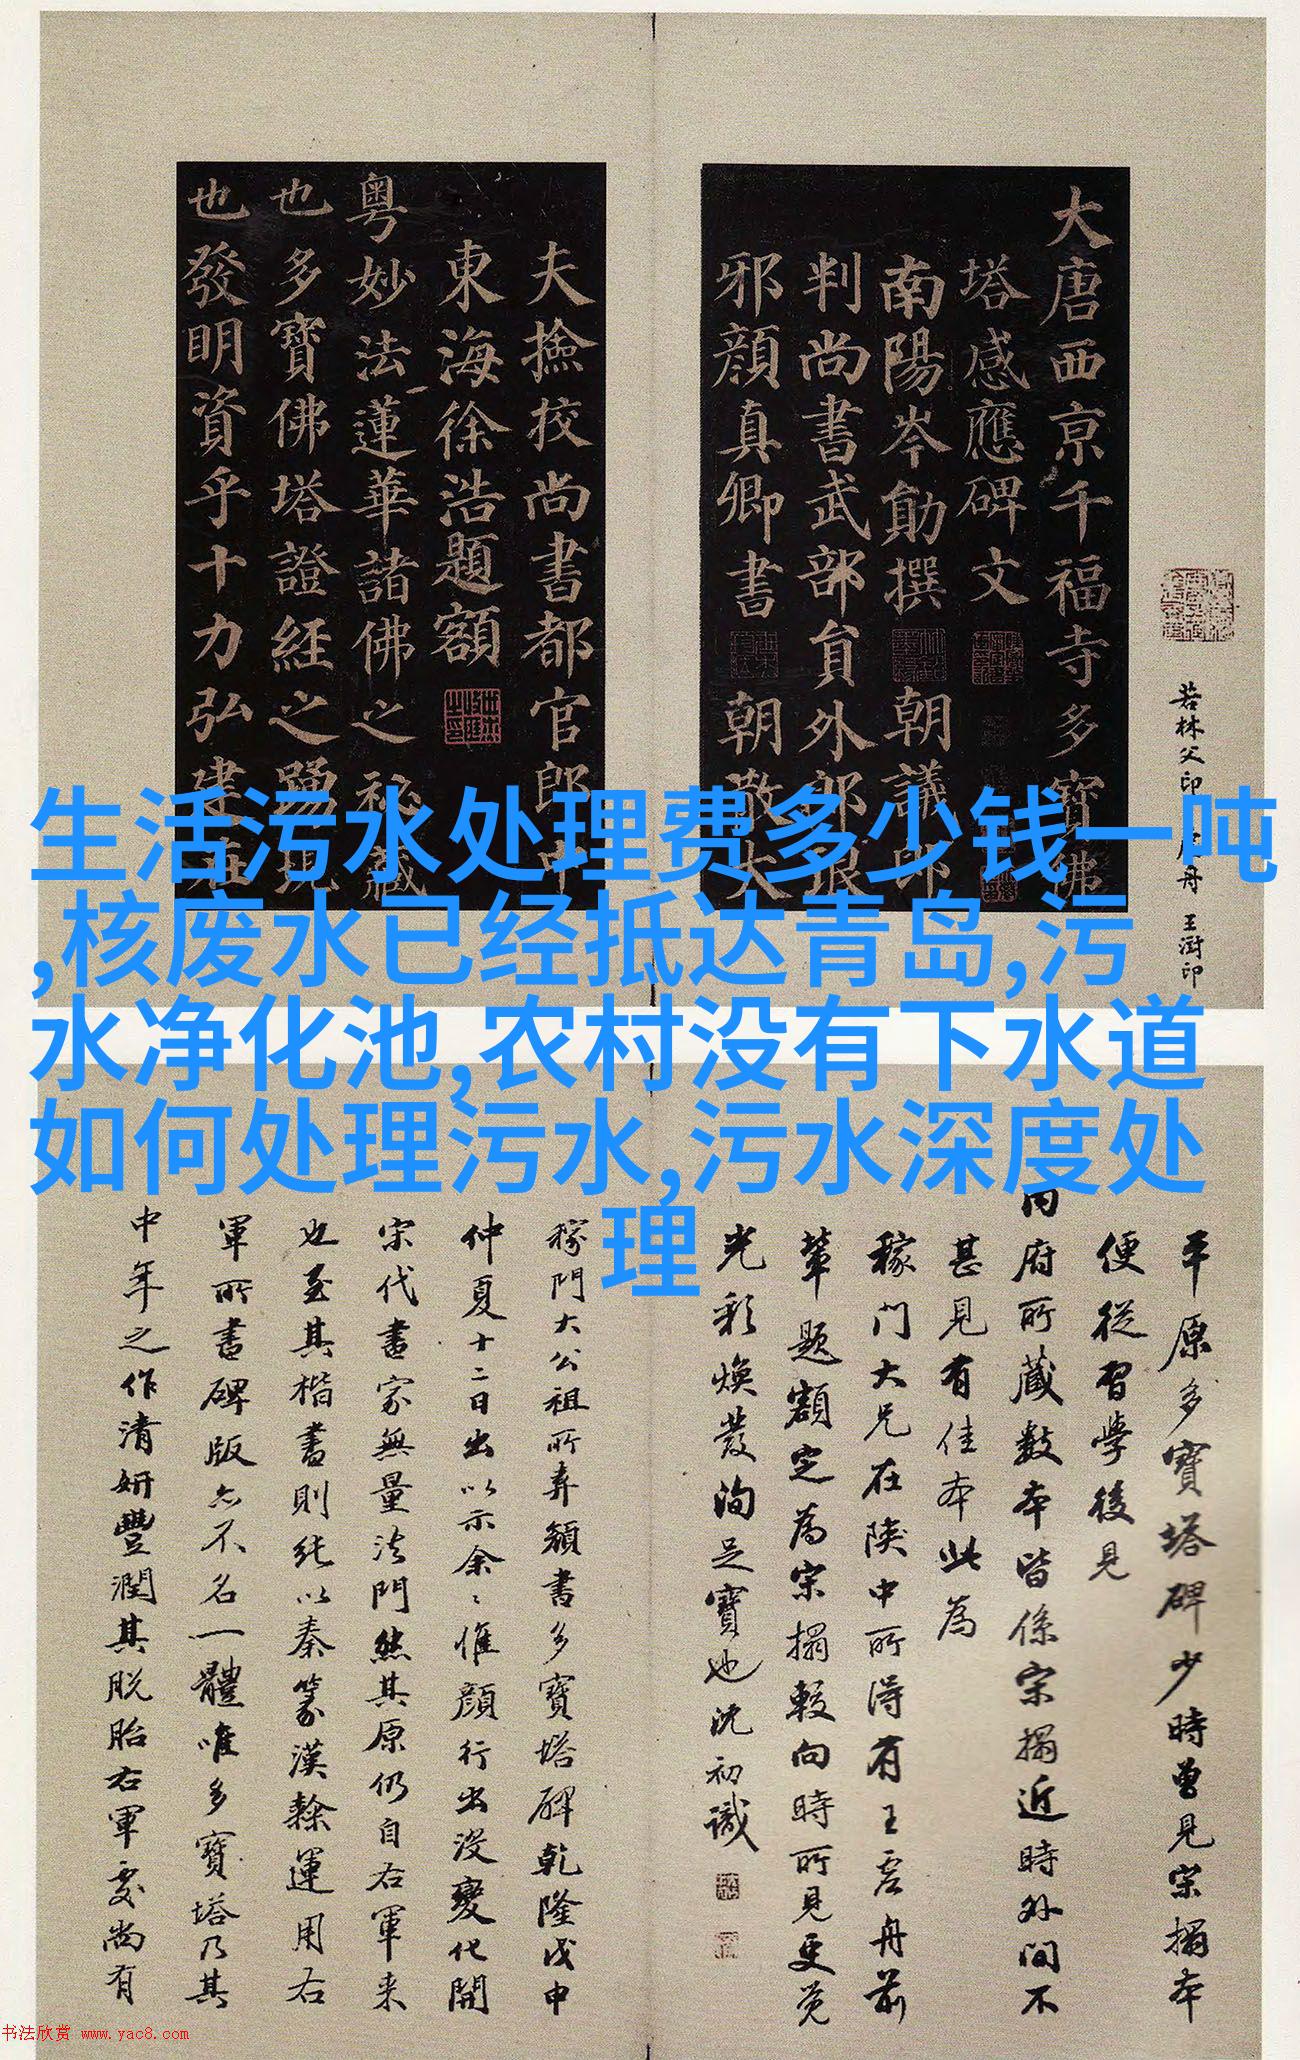 大唐西京千福寺多寶佛
塔感應碑文
南陽岑勛撰 朝議郎
判尚書武部員外郎琅
邪顏真卿書 朝散大
夫撿挍尚書都官郎中
東海徐浩題額
粤妙法蓮華諸佛之祕藏
也多寶佛塔證経之踊現
也發明資乎十力弘建在
若林父印
舟
王澍印
生活污水处理费多少钱一吨
,核废水已经抵达青岛,污
水净化池,农村没有下水道
如何处理污水,污水深度处
理
平原多寶塔碑少時曾見宋搨本
便從習學後見
內府所藏數本皆係宋搨近時外間不
甚見有佳本此為
稼门大兄在陕中所得有王虚舟前
輩題額定為宋搨較向時所見更覚
光彩煥發洵足寶也沈初識
稼門大公祖所弆顏書多寶塔碑乾隆戊申
仲夏十二日出以示余余惟顏行出沒變化開
宋代書家無量法門然其原仍自右軍来
也至其楷書則純以秦篆漢隸運用右
軍所書碑版亦不名一體唯多寶塔乃其
中年之作清妍豐潤其脫胎右軍處尚有
书法欣赏 www.yac8.com